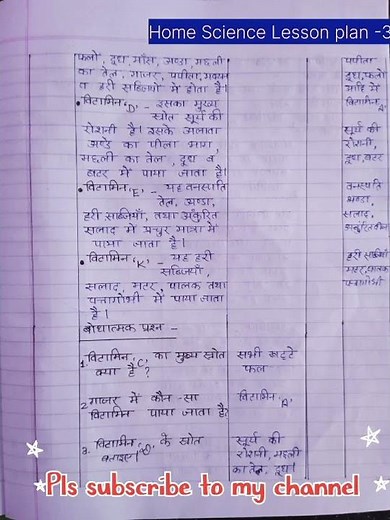 Home Science Lesson plan -3
फलो, दूध, माँस, अण्डा, मछली
का तेल, गाजर, पपीता, मक्खन
व हरी सब्जियों में होता है।
• विटामिन 'D' - इसका मुख्य
स्रोत सूर्य की
रोशनी है। इसके अलावा
अण्डे का पीला भाग,
मछली का तेल, दूध व
बटर में पाया जाता है।
• विटामिन 'E' - यह वनस्पति
तेल, अण्डा,
हरी सब्जियों, तथा अंकुरित
सलाद में प्रचुर मात्रा में
पाया जाता है।
• विटामिन 'K' - यह हरी
सब्जियों,
सलाद, मटर, पालक तथा
पत्तागोभी में पाया जाता
है।
बोधात्मक प्रश्न -
1. विटामिन 'C' का मुख्य स्रोत
क्या है?
सभी खट्टे
फल
2. गाजर में कौन-सा
विटामिन पाया जाता है?
विटामिन 'A'
3. विटामिन 'D' के स्रोत
बताइए।
सूर्य की
रोशनी, मछली
का तेल, दूध।
पपीता
दूध, फलो
आदि में
विटामिन 'A'
सूर्य की
रोशनी,
दूध, बटर
वनस्पति
अण्डा,
सलाद,
हरी सब्जियों
मटर, पालक
पत्तागोभी
Pls subscribe to my channel